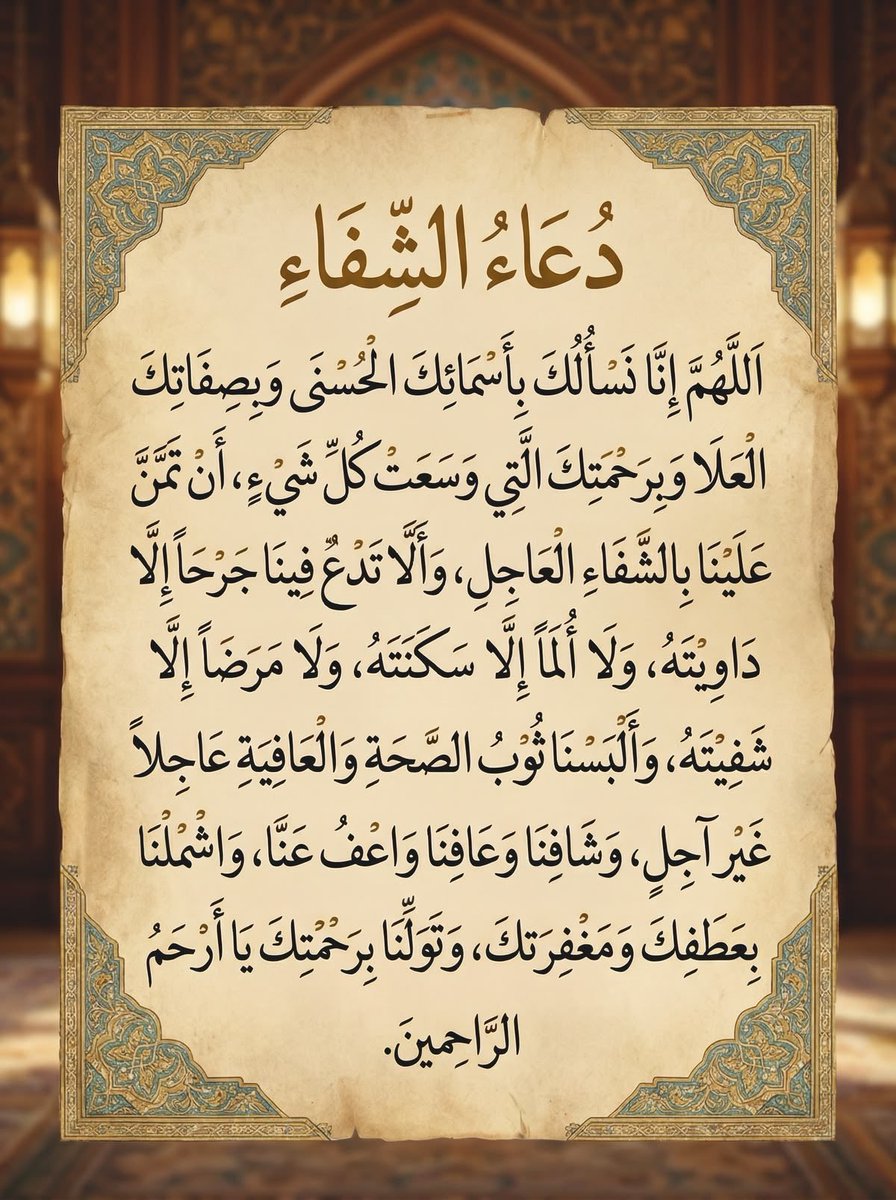 دُعَاءُ الشِّفَاءِ
اَللَّهُمَّ إِنَّا نَسْأَلُكَ بِأَسْمَائِكَ الْحُسْنَى وَبِصِفَاتِكَ
الْعَلَا وَبِرَحْمَتِكَ الَّتِي وَسَعَتْ كُلِّ شَيْءٍ، أَنْ تَمَّنَّ
عَلَيْنَا بِالشَّفَاءِ الْعَاجِلِ، وَأَلَّا تَدْعٌ فِينَا جَرْحَاً إِلَّا
دَاوِيْتَهُ، وَلَا أُلَمَاً إِلَّا سَكَنَتَهُ، وَلَا مَرَضَاً إِلَّا
شَفِيْتَهُ، وَأَلْبَسْنَا ثُوْبُ الصَّحَةِ وَالْعَافِيَةِ عَاجِلاً
غَيْر آجِلٍ، وَشَافِنَا وَعَافِنَا وَاعْفُ عَنَّا، وَاشْمْلْنَا
بِعَطَفِكَ وَمَغْفِرَتكَ، وَتَوَلِّنَا بِرَحْمْتِكَ يَا أَرْحَمُ
الرَّاحِمينَ.